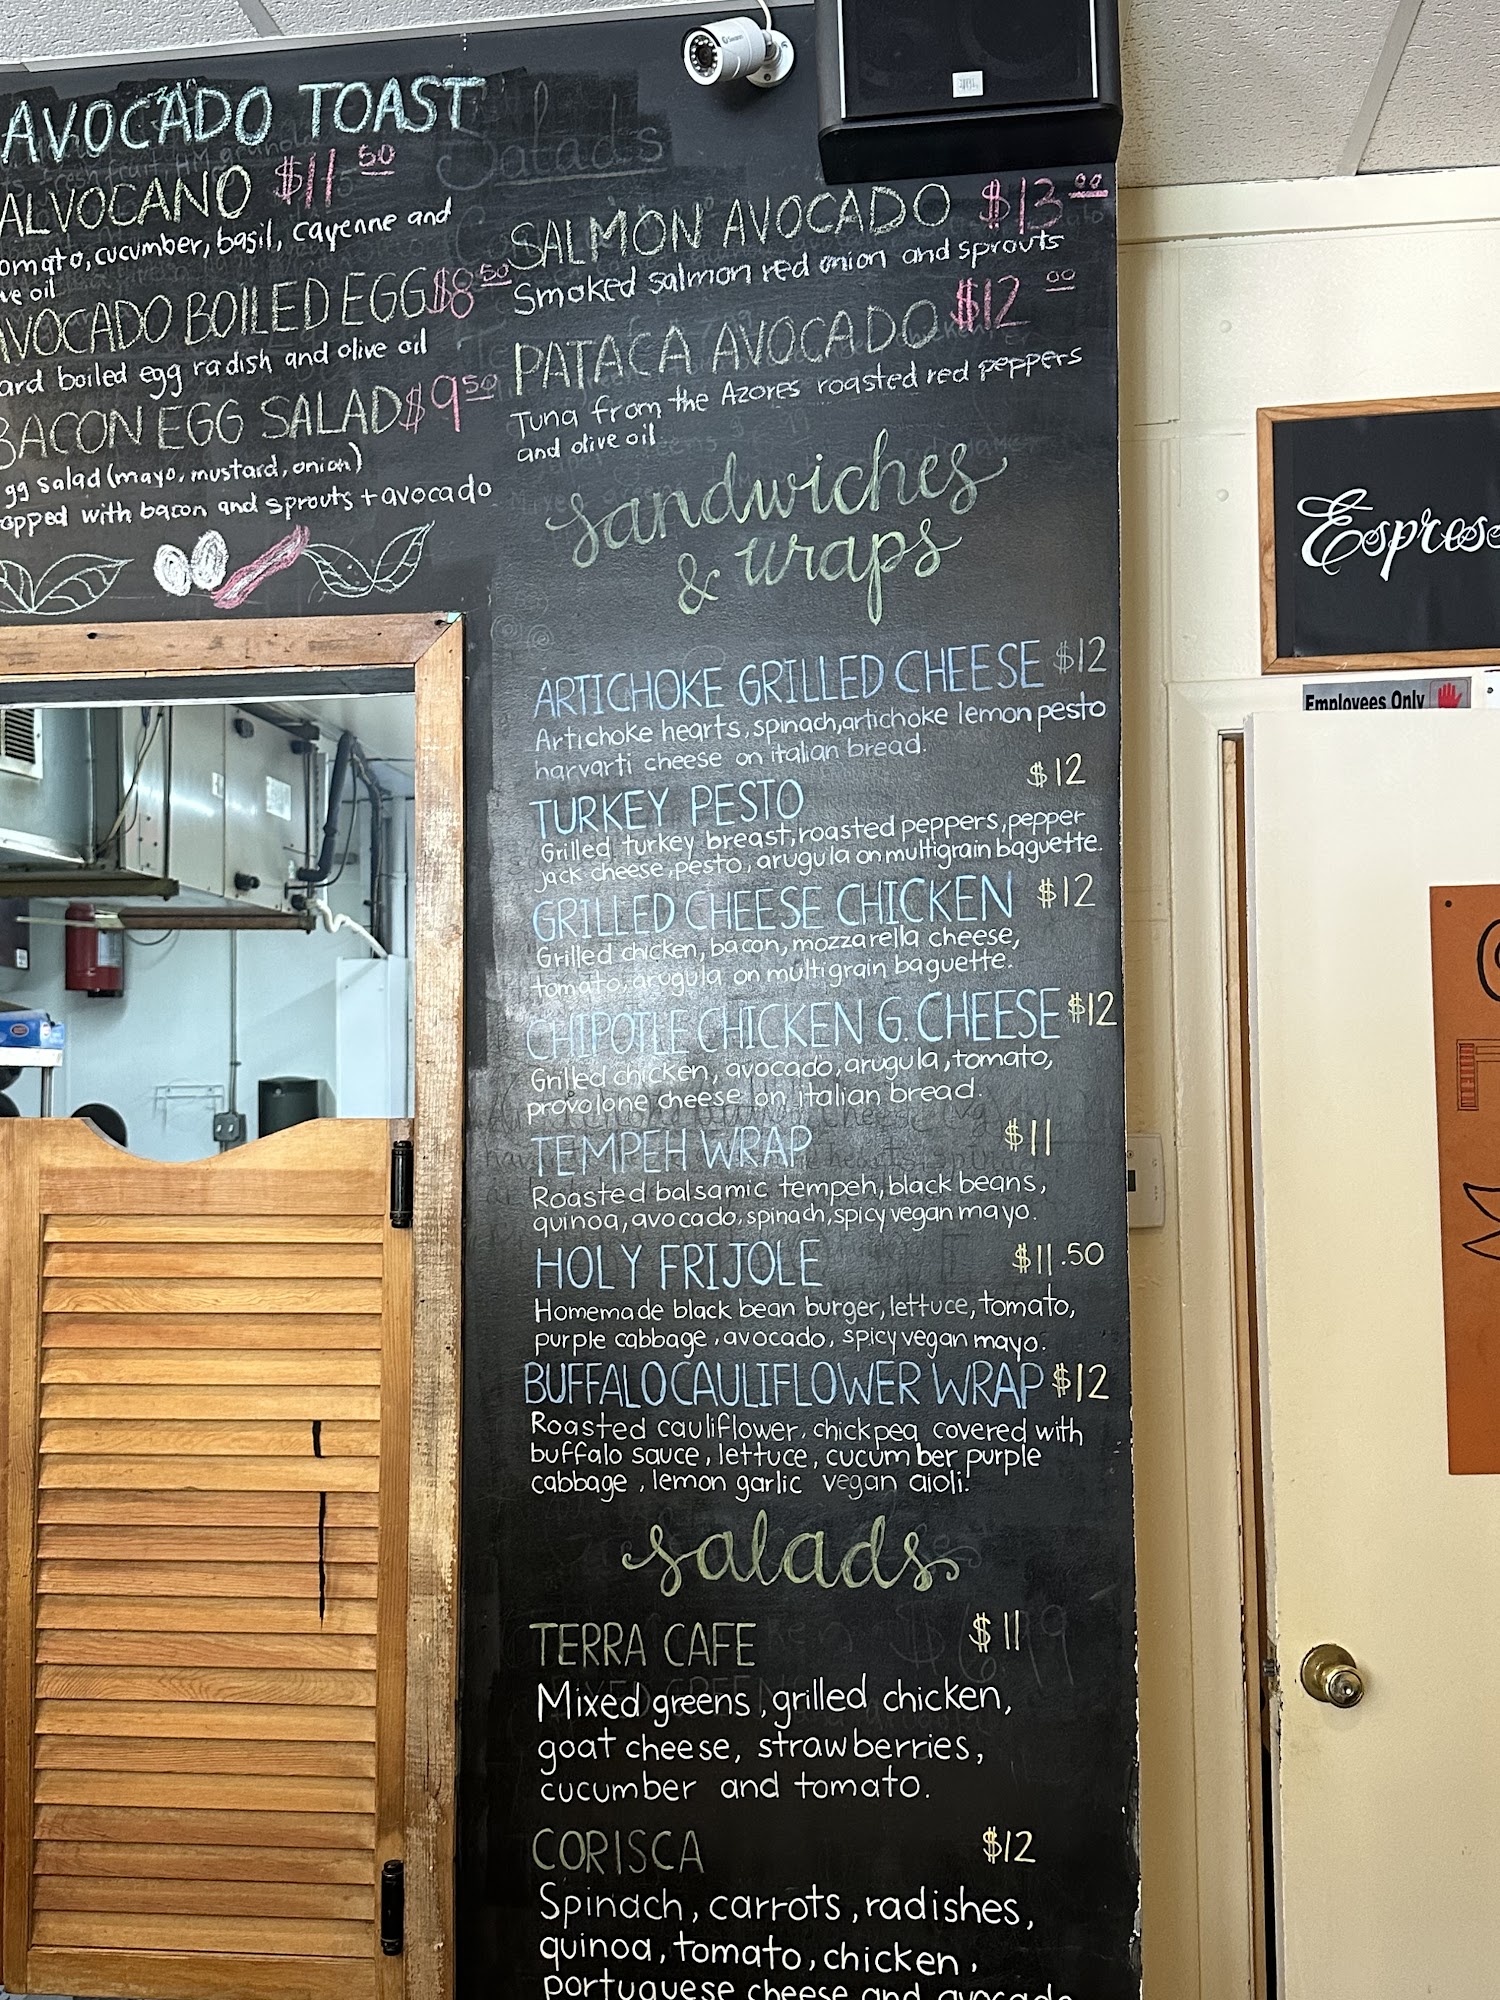 AVOCADO TOAST
ALVOCANO $11 50
omato, cucumber, basil, cayenne and
ve oil
AVOCADO BOILED EGG $8 50
ard boiled egg radish and olive oil
BACON EGG SALAD $9 50
gg salad (mayo, mustard, onion)
opped with bacon and sprouts + avocado
Salads
SALMON AVOCADO $13 00
Smoked salmon red onion and sprouts
PATACA AVOCADO $12 00
Tuna from the Azores roasted red peppers
and olive oil
sandwiches
& wraps
ARTICHOKE GRILLED CHEESE $12
Artichoke hearts, spinach, artichoke lemon pesto
harvarti cheese on italian bread.
TURKEY PESTO $12
Grilled turkey breast, roasted peppers, pepper
jack cheese, pesto, arugula on multigrain baguette.
GRILLED CHEESE CHICKEN $12
Grilled chicken, bacon, mozzarella cheese,
tomato, arugula on multigrain baguette.
CHIPOTLE CHICKEN G. CHEESE $12
Grilled chicken, avocado, arugula, tomato,
provolone cheese on italian bread.
TEMPEH WRAP $11
Roasted balsamic tempeh, black beans,
quinoa, avocado, spinach, spicy vegan mayo.
HOLY FRIJOLE $11.50
Homemade black bean burger, lettuce, tomato,
purple cabbage, avocado, spicy vegan mayo.
BUFFALO CAULIFLOWER WRAP $12
Roasted cauliflower, chickpea covered with
buffalo sauce, lettuce, cucumber purple
cabbage, lemon garlic vegan aioli.
salads
TERRA CAFE $11
Mixed greens, grilled chicken,
goat cheese, strawberries,
cucumber and tomato.
CORISCA $12
Spinach, carrots, radishes,
quinoa, tomato, chicken,
portuguese cheese and avocado
Espress
Employees Only
JBL